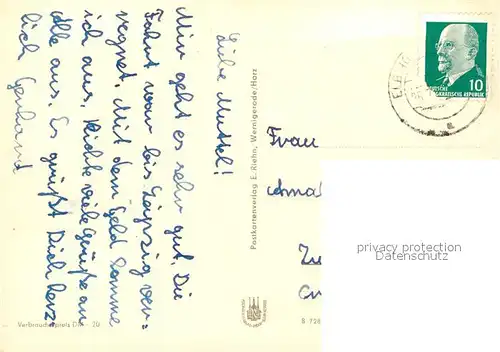 Liebe Muttel!
Mir geht es sehr gut. Die
Fahrt war bis Leipzig ver-
regnet. Mit dem Geld komme
ich aus. Richte viele Grüße an
alle aus. Es grüßt Dich herz-
lich Gerhard
Verbraucherpreis DM - 20
Postkartenverlag E. Riehn, Wernigerode/Harz
10
DEUTSCHE
DEMOKRATISCHE REPUBLIK
Frau
Zu
privacy protection
Datenschutz